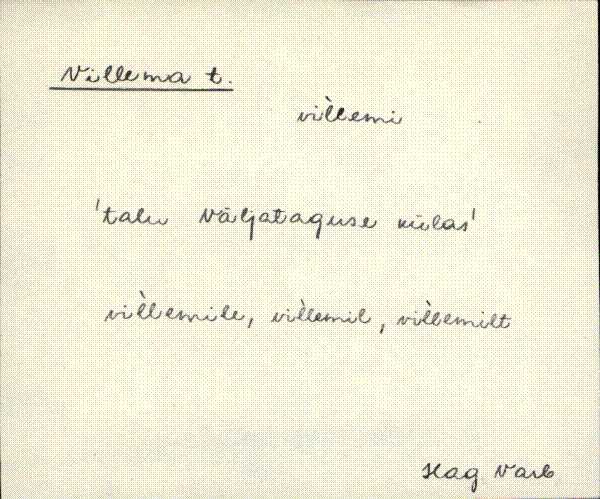 Villema t.
vil̀lemi
'talu Väljataguse külas'
vil̀lemile, vil̀lemil, vil̀lemilt
Hag Varb